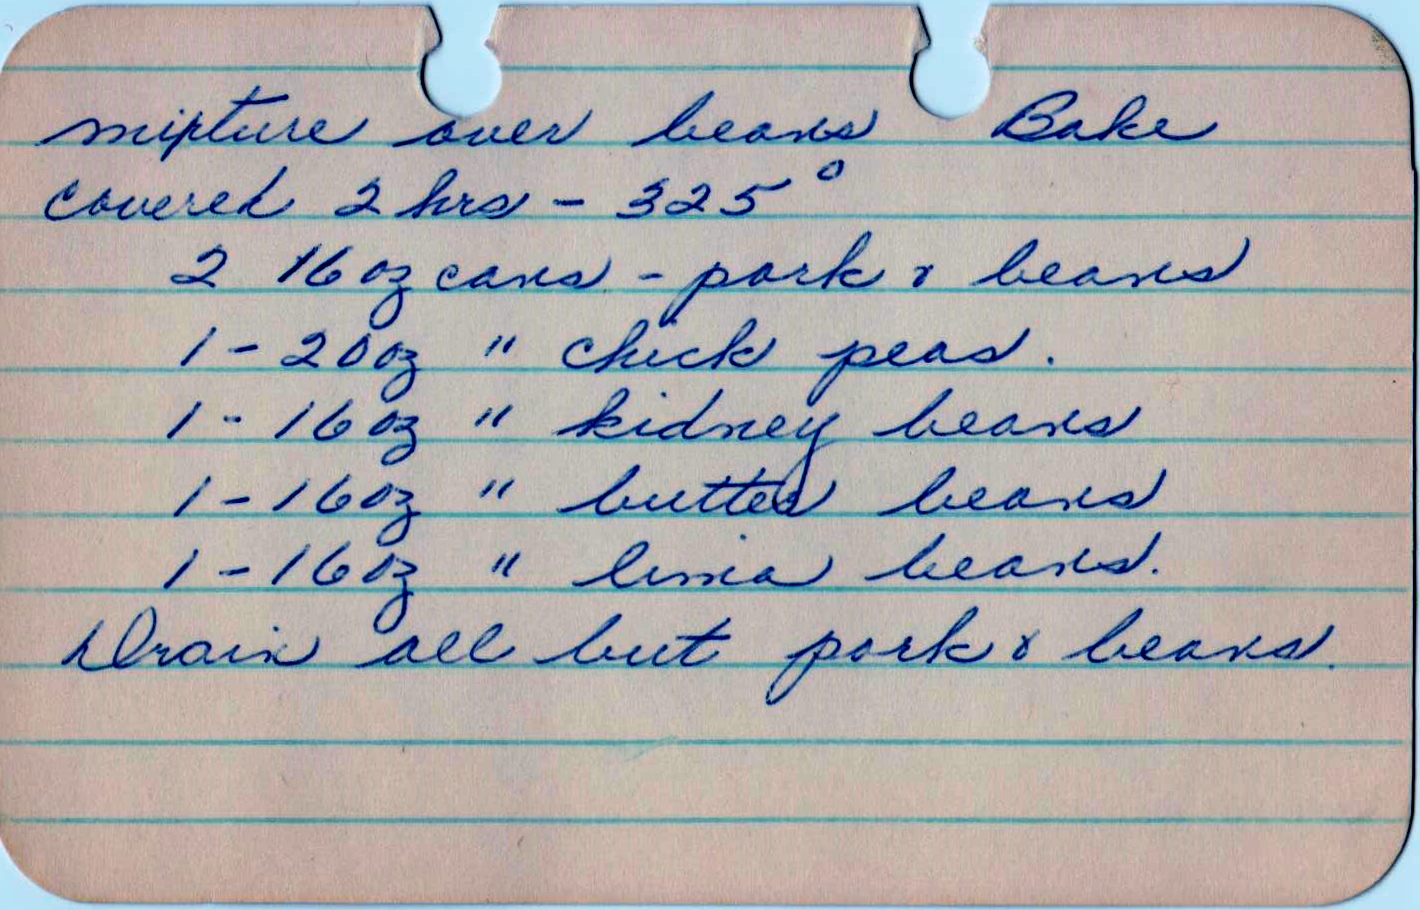 mixture over beans Bake
covered 2 hrs - 325°
2 16 oz cans - pork & beans
1 - 20 oz " chick peas.
1 - 16 oz " kidney beans
1 - 16 oz " butter beans
1 - 16 oz " lima beans.
Drain all but pork & beans.